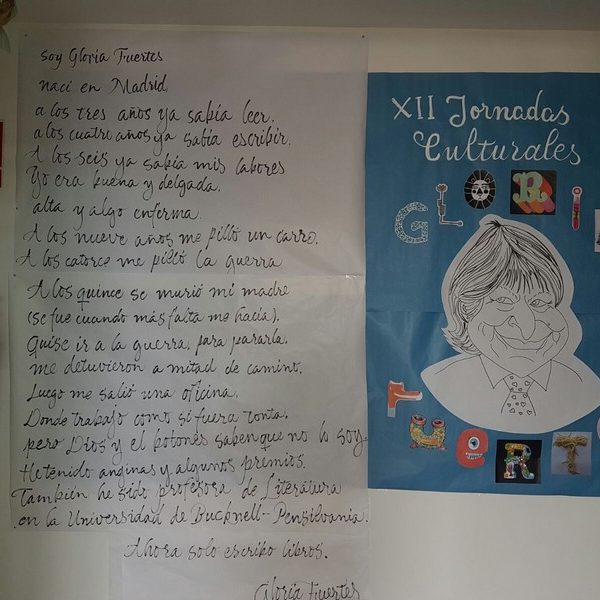 Soy Gloria Fuertes
nací en Madrid
a los tres años ya sabía leer.
a los cuatro años ya sabía escribir.
A los seis ya sabía mis labores
Yo era buena y delgada.
alta y algo enferma.
A los nueve años me pilló un carro.
A los catorce me pilló la guerra
A los quince se murió mi madre
(se fue cuando más falta me hacía).
Quise ir a la guerra, para pararla.
me detuvieron a mitad de camino.
Luego me salió una oficina.
Donde trabajo como si fuera tonta.
pero Dios y el botones saben que no lo soy.
He tenido anginas y algunos premios.
También he sido profesora de Literatura
en la Universidad de Bucknell-Pensilvania.
Ahora solo escribo libros.
Gloria Fuertes
XII Jornadas
Culturales
GLORI
FUERT